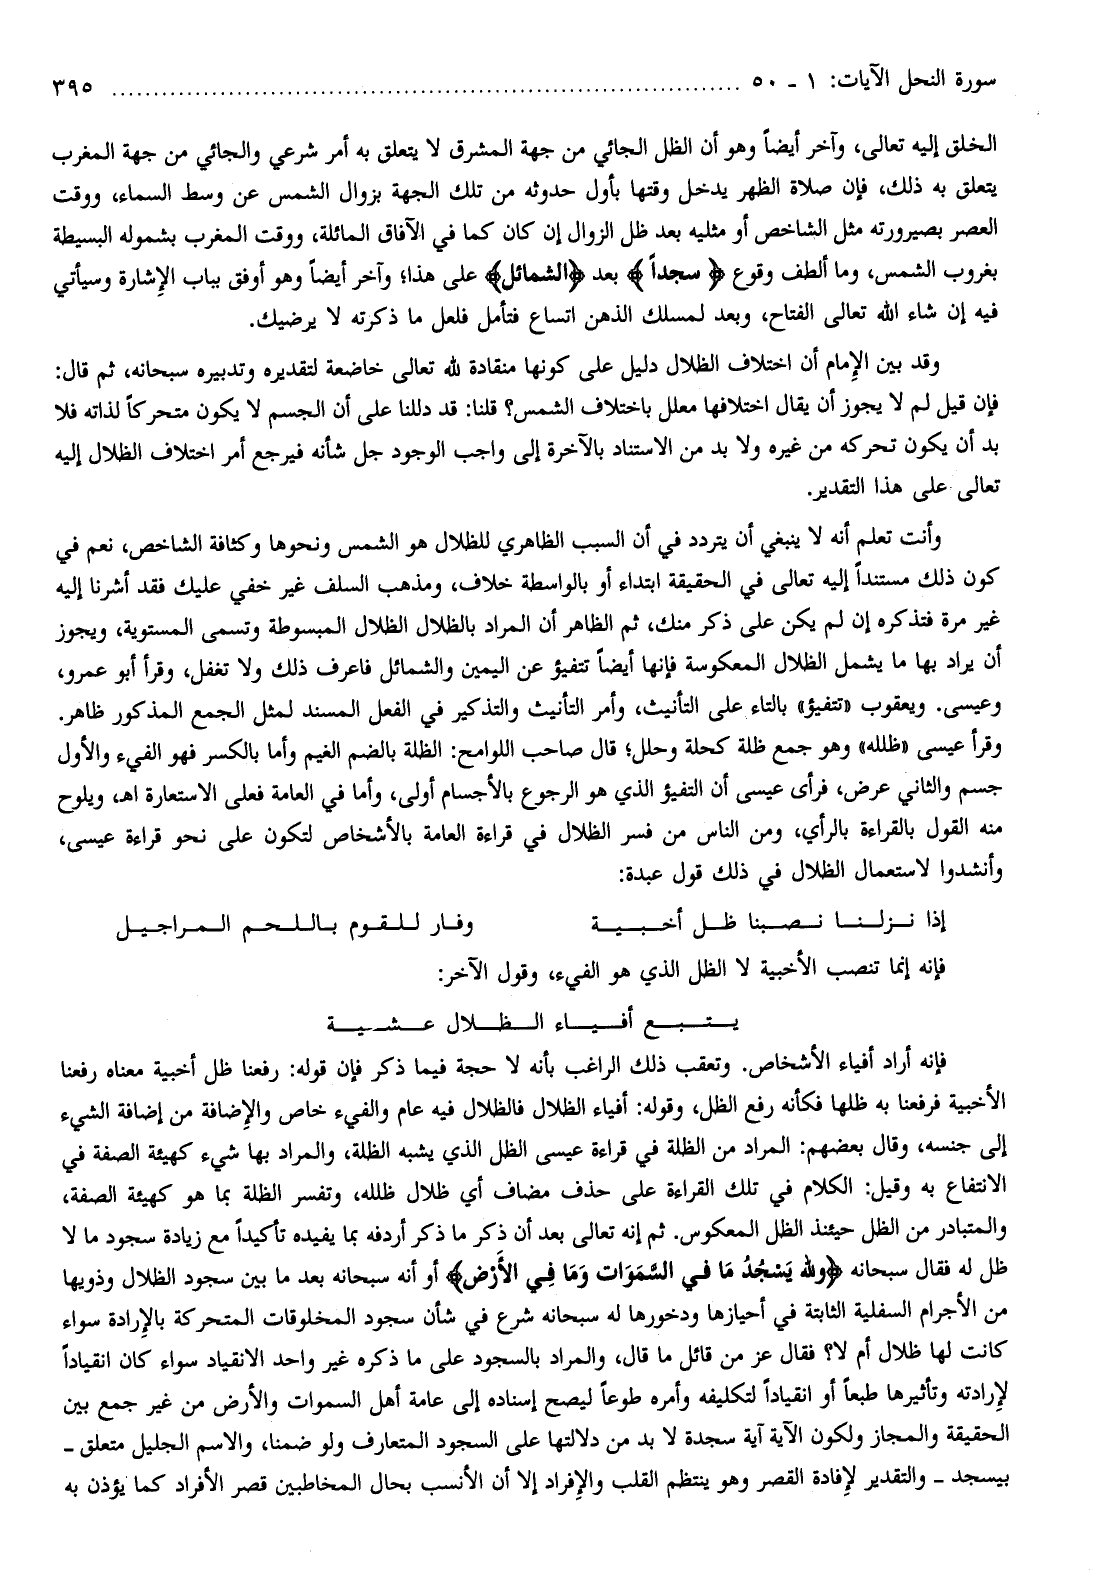 سورة النحل الآيات: ١ ـ ٥٠ ........................................................................... ٣٩٥
الخلق إليه تعالى، وآخر أيضاً وهو أن الظل الجائي من جهة المشرق لا يتعلق به أمر شرعي والجائي من جهة المغرب
يتعلق به ذلك، فإن صلاة الظهر يدخل وقتها بأول حدوثه من تلك الجهة بزوال الشمس عن وسط السماء، ووقت
العصر بصيرورته مثل الشاخص أو مثليه بعد ظل الزوال إن كان كما في الآفاق المائلة، ووقت المغرب بشموله البسيطة
بغروب الشمس، وما ألطف وقوع ﴿سجداً﴾ بعد ﴿الشمائل﴾ على هذا؛ وآخر أيضاً وهو أوفق بباب الإشارة وسيأتي
فيه إن شاء الله تعالى الفتاح، وبعد لمسلك الذهن اتساع فتأمل فلعل ما ذكرته لا يرضيك.
وقد بين الإمام أن اختلاف الظلال دليل على كونها منقادة لله تعالى خاضعة لتقديره وتدبيره سبحانه، ثم قال:
فإن قيل لم لا يجوز أن يقال اختلافها معلل باختلاف الشمس؟ قلنا: قد دللنا على أن الجسم لا يكون متحركاً لذاته فلا
بد أن يكون تحركه من غيره ولا بد من الاستناد بالآخرة إلى واجب الوجود جل شأنه فيرجع أمر اختلاف الظلال إليه
تعالى على هذا التقدير.
وأنت تعلم أنه لا ينبغي أن يتردد في أن السبب الظاهري للظلال هو الشمس ونحوها وكثافة الشاخص، نعم في
كون ذلك مستنداً إليه تعالى في الحقيقة ابتداء أو بالواسطة خلاف، ومذهب السلف غير خفي عليك فقد أشرنا إليه
غير مرة فتذكره إن لم يكن على ذكر منك، ثم الظاهر أن المراد بالظلال الظلال المبسوطة وتسمى المستوية، ويجوز
أن يراد بها ما يشمل الظلال المعكوسة فإنها أيضاً تتفيؤ عن اليمين والشمائل فاعرف ذلك ولا تغفل، وقرأ أبو عمرو،
وعيسى. ويعقوب «تتفيؤ» بالتاء على التأنيث، وأمر التأنيث والتذكير في الفعل المسند لمثل الجمع المذكور ظاهر.
وقرأ عيسى «ظلله» وهو جمع ظلة كحلة وحلل؛ قال صاحب اللوامح: الظلة بالضم الغيم وأما بالكسر فهو الفيء والأول
جسم والثاني عرض، فرأى عيسى أن التفيؤ الذي هو الرجوع بالأجسام أولى، وأما في العامة فعلى الاستعارة اهـ، ويلوح
منه القول بالقراءة بالرأي، ومن الناس من فسر الظلال في قراءة العامة بالأشخاص لتكون على نحو قراءة عيسى،
وأنشدوا لاستعمال الظلال في ذلك قول عبدة:
إذا نزلنا نصبنا ظل أخبية وفار للقوم باللحم المراجيل
فإنه إنما تنصب الأخبية لا الظل الذي هو الفيء، وقول الآخر:
يتبع أفياء الظلال عشية
فإنه أراد أفياء الأشخاص. وتعقب ذلك الراغب بأنه لا حجة فيما ذكر فإن قوله: رفعنا ظل أخبية معناه رفعنا
الأخبية فرفعنا به ظلها فكأنه رفع الظل، وقوله: أفياء الظلال فالظلال فيه عام والفيء خاص والإضافة من إضافة الشيء
إلى جنسه، وقال بعضهم: المراد من الظلة في قراءة عيسى الظل الذي يشبه الظلة، والمراد بها شيء كهيئة الصفة في
الانتفاع به وقيل: الكلام في تلك القراءة على حذف مضاف أي ظلال ظلله، وتفسر الظلة بما هو كهيئة الصفة،
والمتبادر من الظل حيئنذ الظل المعكوس. ثم إنه تعالى بعد أن ذكر ما ذكر أردفه بما يفيده تأكيداً مع زيادة سجود ما لا
ظل له فقال سبحانه ﴿ولله يَسْجُدُ مَا في السَّمَوَات وَمَا فِي الأَرْض﴾ أو أنه سبحانه بعد ما بين سجود الظلال وذويها
من الأجرام السفلية الثابتة في أحيازها ودخورها له سبحانه شرع في شأن سجود المخلوقات المتحركة بالإرادة سواء
كانت لها ظلال أم لا؟ فقال عز من قائل ما قال، والمراد بالسجود على ما ذكره غير واحد الانقياد سواء كان انقياداً
لإرادته وتأثيرها طبعاً أو انقياداً لتكليفه وأمره طوعاً ليصح إسناده إلى عامة أهل السموات والأرض من غير جمع بين
الحقيقة والمجاز ولكون الآية آية سجدة لا بد من دلالتها على السجود المتعارف ولو ضمنا، والاسم الجليل متعلق ـ
بيسجد ـ والتقدير لإفادة القصر وهو ينتظم القلب والإفراد إلا أن الأنسب بحال المخاطبين قصر الأفراد كما يؤذن به